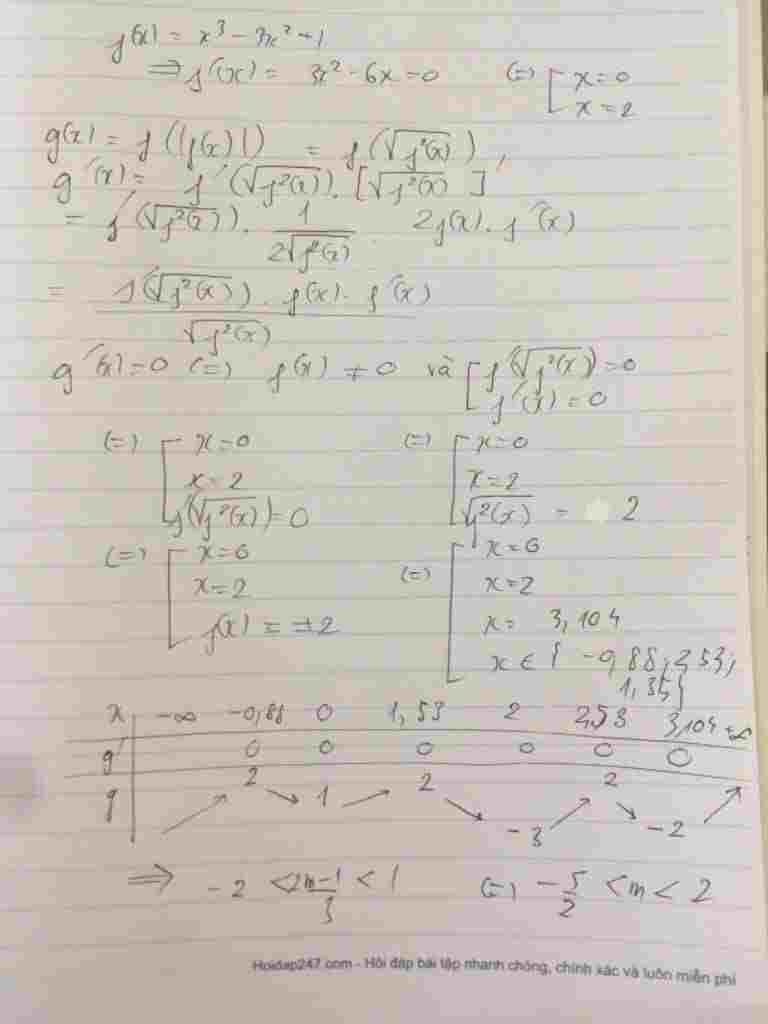 f(x) = x³ - 3x² - 1
⇒ f'(x) = 3x² - 6x = 0 (=) [ x = 0
x = 2
g(x) = f(|f(x)|) = f(√f²(x))
g'(x) = f'(√f²(x)). [√f²(x)]'
= f'(√f²(x)). 1/2√f²(x) . 2f(x). f'(x)
= f'(√f²(x)). f(x). f'(x) / √f²(x)
g'(x) = 0 (=) f(x) ≠ 0 và [ f'(√f²(x)) = 0
f'(x) = 0
(=) [ x = 0 (=) [ x = 0
x = 2 x = 2
f'(√f²(x)) = 0 √f²(x) = 2
(=) [ x = 0 (=) [ x = 0
x = 2 x = 2
f(x) = ±2 x = 3,104
x ∈ { -0,88; 2,53;
1,35}
x -∞ -0,88 0 1,53 2 2,53 3,104 +∞
g' 0 0 0 0 0 0
g ↗ 2 ↘ 1 ↗ 2 ↘ -3 ↗ 2 ↘ -2 ↗
⇒ -2 < 2m-1/3 < 1 (=) -5/2 < m < 2
Hoidap247.com - Hỏi đáp bài tập nhanh chóng, chính xác và luôn miễn phí